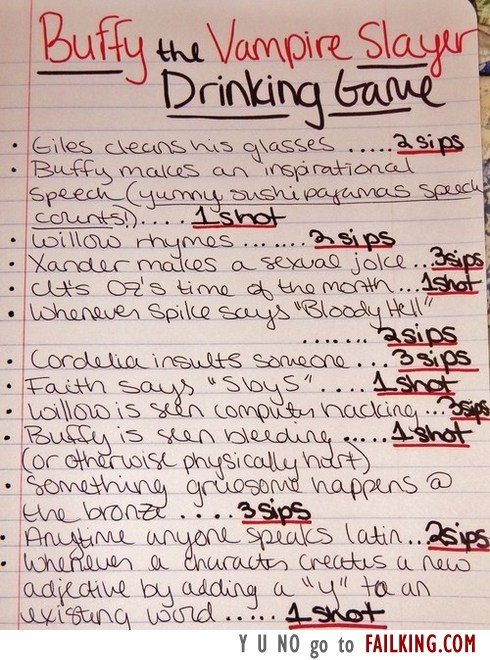 Buffy the Vampire Slayer
Drinking Game
• Giles cleans his glasses ..... 2 sips
• Buffy makes an inspirational
speech (yummy sushi pajamas speech
counts!).... 1 shot
• Willow rhymes ...... 2 sips
• Xander makes a sexual joke ... 3 sips
• It's Oz's time of the month ... 1 shot
• Whenever Spike says "Bloody Hell"
....... 2 sips
• Cordelia insults someone ... 3 sips
• Faith says "5by5" .... 1 shot
• Willow is seen computer hacking ... 3 sips
• Buffy is seen bleeding ..... 1 shot
(or otherwise physically hurt)
• Something gruesome happens @
the bronze ..... 3 sips
• Anytime anyone speaks latin .. 2 sips
• Whenever a character creates a new
adjective by adding a "y" to an
existing word ..... 1 shot
Y U NO go to FAILKING.COM